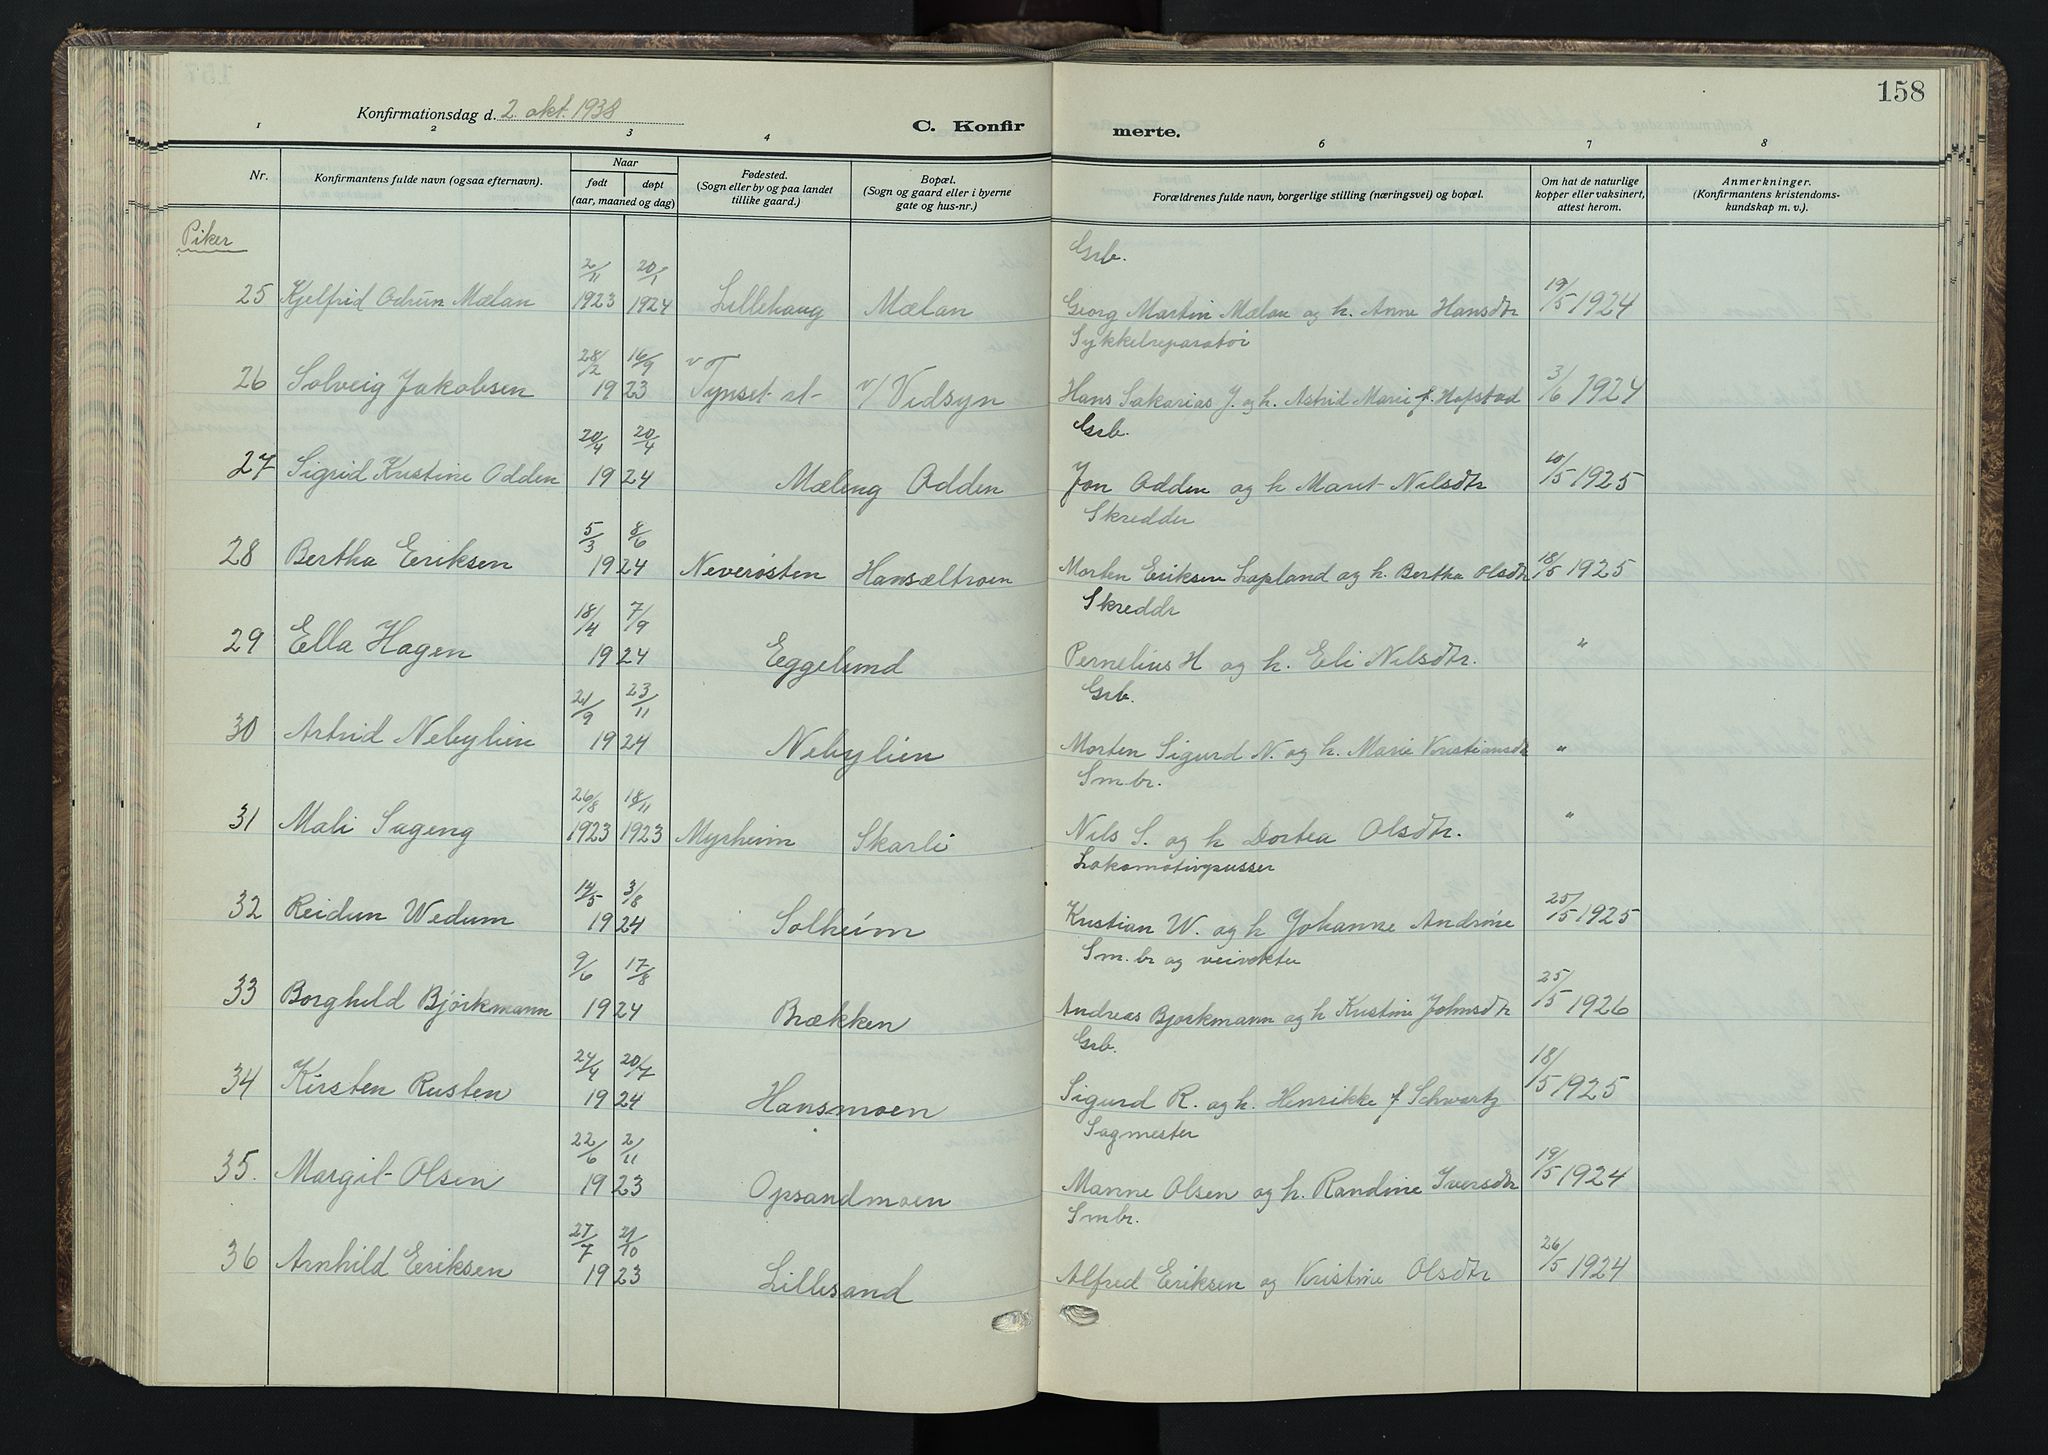 158
Konfirmationsdag d. 2. okt. 1938
C. Konfir merte.
1 2 3 4 6 7 8
Nr. Konfirmantens fulde navn (ogsaa efternavn). Naar født døpt (aar, maaned og dag) Fødested. (Sogn eller by og paa landet tillike gaard.) Bopæl. (Sogn og gaard eller i byerne gate og hus-nr.) Forældrenes fulde navn, borgerlige stilling (næringsvei) og bopæl. Om hat de naturlige kopper eller vaksinert, attest herom. Anmerkninger. (Konfirmantens kristendoms-kundskap m. v.).
Piker
2/11 20/1 Grb.
25 Kjelfrid Odrun Mælan 1923 1924 Lillehaug Mælan Georg Martin Mælan og h. Anne Hansdtr 19/5 1924
28/2 16/9 Sykkelreparatør
26 Solveig Jakobsen 19 23 Tynset st v/ Vidsyn Hans Sakarias J. og h. Astrid Marie f. Hofstad 3/6 1924
20/4 20/4 Grb.
27 Sigrid Kristine Odden 19 24 Mæleng Odden Jon Odden og h Maret Nilsdtr 10/5 1925
5/3 8/6 Skredder
28 Bertha Eriksen 19 24 Neverøsten Hansæltroen Morten Eriksen Lapland og h. Bertha Olsdtr 18/5 1925
18/4 7/9 Skreddr
29 Ella Hagen 19 24 Eggelund Pernelius H og h. Eli Nilsdtr. "
21/9 23/11 Grb.
30 Astrid Nebylien 19 24 Nebylien Morten Sigurd N. og h. Marie Kristiansdr "
26/8 18/11 Smbr.
31 Mali Sageng 1923 1923 Myrheim Skarli Nils S. og h Dortea Olsdtr. "
14/5 3/8 Lokomotivpusser
32 Reidun Wedum 19 24 Solheim Kristian W. og h Johanne Andrine 25/5 1925
9/6 17/8 Sm.br og veivokter
33 Borghild Bjørkmann 19 24 Brækken Andreas Bjørkmann og h Kristine Johnsdtr 25/5 1926
24/4 20/7 Grb.
34 Kirsten Rusten 19 24 Hansmoen Sigurd R. og h. Henrikke f Schwartz 18/5 1925
22/6 2/11 Sagmester
35. Margit Olsen 19 23 Opsandmoen Manne Olsen og h. Randine Iversdtr 19/5 1924
27/7 21/10 Smbr.
36 Arnhild Eriksen 19 23 Lillesand Alfred Eriksen og Kristine Olsdtr 26/5 1924